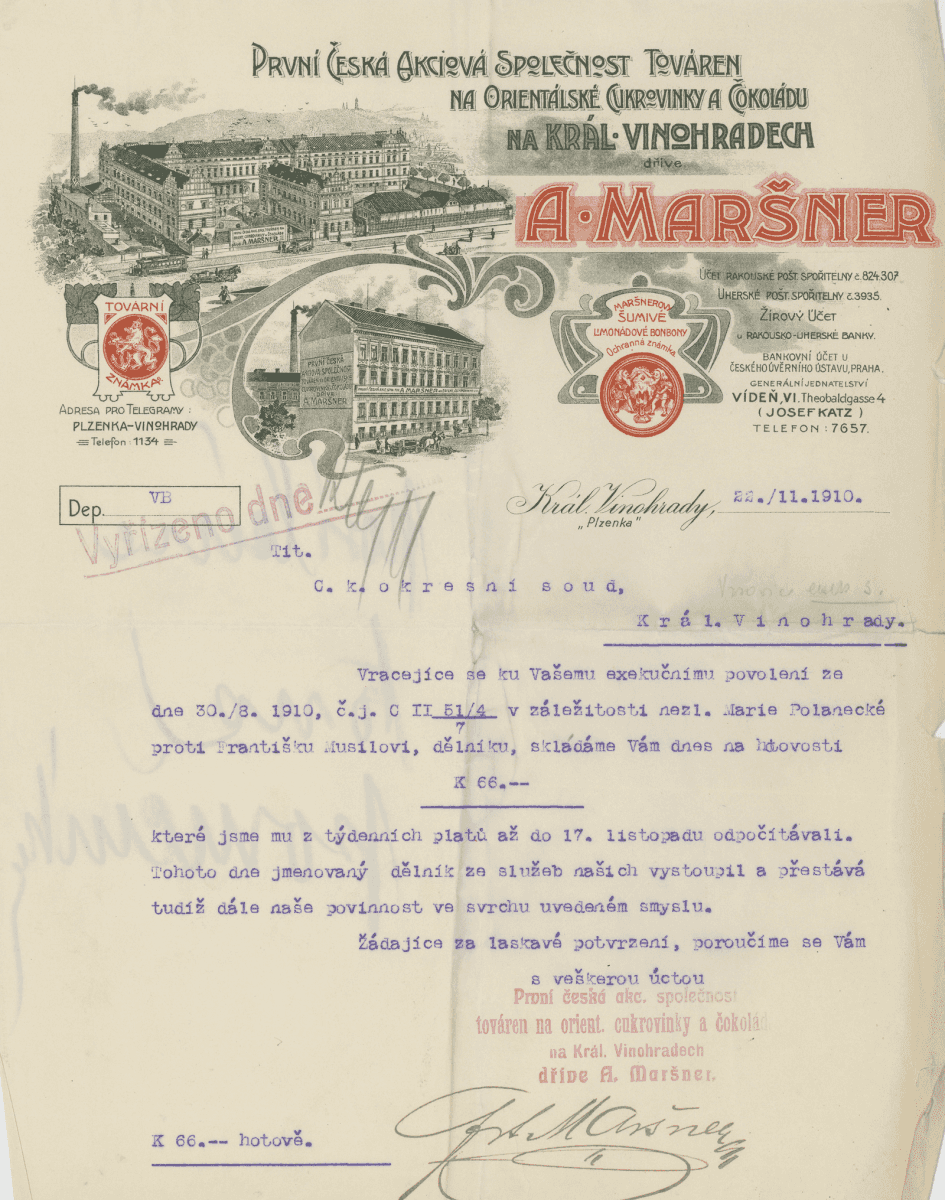 První Česká Akciová Společnost Továren
na Orientálské Cukrovinky a Čokoládu
na Král. Vinohradech
dříve
A. Maršner
TOVÁRNÍ
ZNÁMKA.
Adresa pro Telegramy:
PLZENKA-VINOHRADY
Telefon: 1134
A. MARŠNER
PRVNÍ ČESKÁ
DŘÍVE
A. MARŠNER
MARŠNEROVY
ŠUMIVÉ
LIMONÁDOVÉ BONBONY
Ochranná známka
Účet Rakouské pošt. spořitelny č. 824.307
Uherské pošt. spořitelny č. 3935.
Žirový Účet
u Rakousko-Uherské banky.
Bankovní účet u
Českého úvěrního ústavu, Praha.
Generální jednatelství
Vídeň, VI. Theobaldgasse 4
(Josef Katz)
Telefon: 7657.
Dep. VB
Vyřízeno dně
Král. Vinohrady, 22./11.1910.
„Plzenka"
Tit.
C. k. okresní soud,
Král. Vinohrady.
Vracejíce se ku Vašemu exekučnímu povolení ze
dne 30./8. 1910, č.j. C II 51/4 v záležitosti nezl. Marie Polanecké
7
proti Františku Musilovi, dělníku, skládáme Vám dnes na hotovosti
K 66.--
které jsme mu z týdenních platů až do 17. listopadu odpočítávali.
Tohoto dne jmenovaný dělník ze služeb našich vystoupil a přestává
tudíž dále naše povinnost ve svrchu uvedeném smyslu.
Žádajíce za laskavé potvrzení, poroučíme se Vám
s veškerou úctou
První česká akc. společnost
továren na orient. cukrovinky a čokolád
na Král. Vinohradech
dříve A. Maršner.
Maršner
K 66.-- hotově.